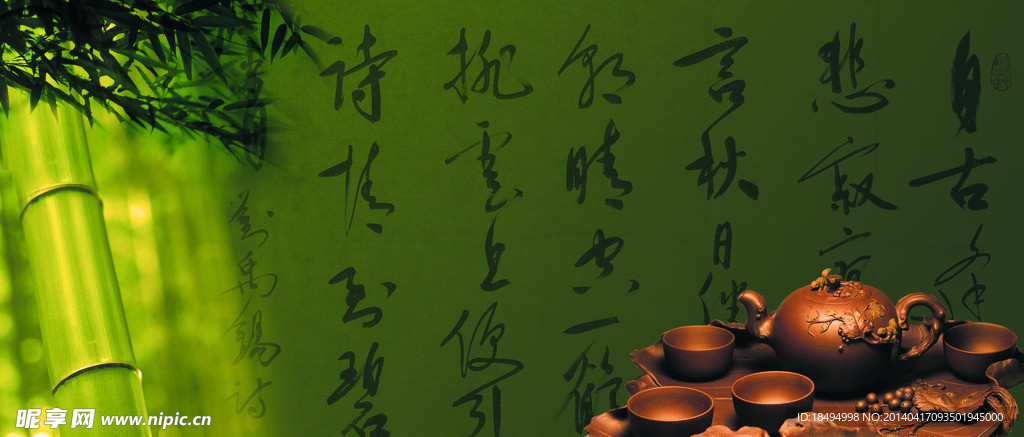 自古逢
悲寂寥
言秋日勝
朝晴空一鶴
排雲上便引
詩情到碧
劉禹錫詩
昵享网 www.nipic.cn
ID:18494998 NO:20140417093501945000